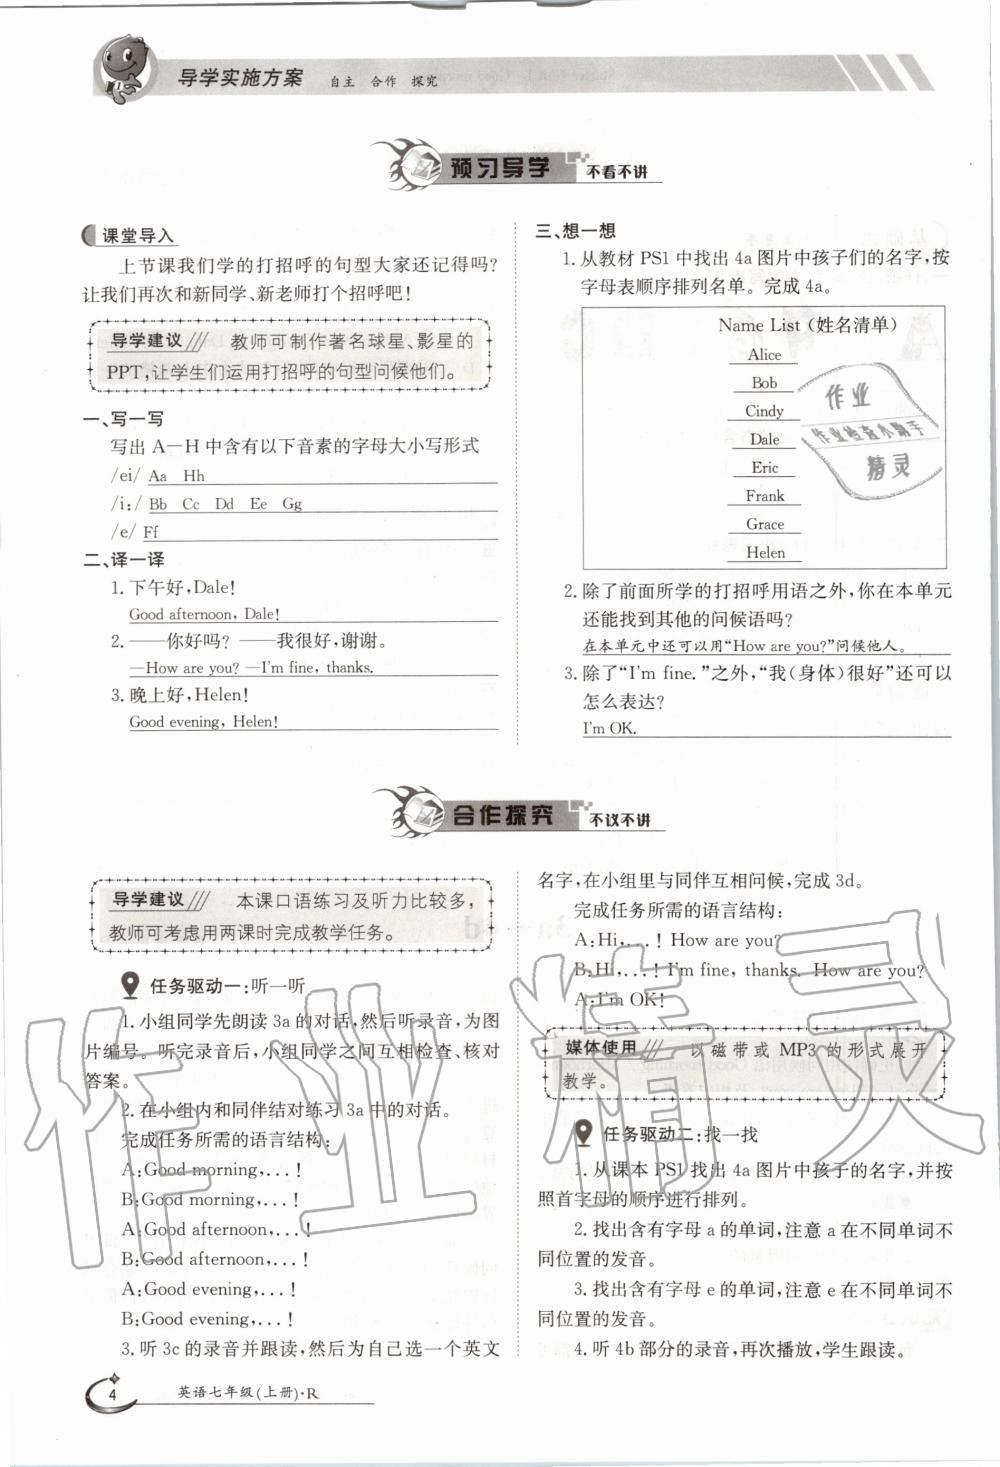 导学实施方案 自主 合作 探究
预习导学 不看不讲
课堂导入
上节课我们学的打招呼的句型大家还记得吗?
让我们再次和新同学、新老师打个招呼吧!
导学建议 教师可制作著名球星、影星的
PPT,让学生们运用打招呼的句型问候他们。
一、写一写
写出 A—H 中含有以下音素的字母大小写形式
/ei/ Aa Hh
/i:/ Bb Cc Dd Ee Gg
/e/ Ff
二、译一译
1. 下午好,Dale!
Good afternoon, Dale!
2. ——你好吗? ——我很好,谢谢。
—How are you? —I'm fine, thanks.
3. 晚上好,Helen!
Good evening, Helen!
三、想一想
1. 从教材 PS1 中找出 4a 图片中孩子们的名字,按
字母表顺序排列名单。完成 4a。
Name List (姓名清单)
Alice
Bob
Cindy
Dale
Eric
Frank
Grace
Helen
作业
作业检查小帮手
精灵
2. 除了前面所学的打招呼用语之外,你在本单元
还能找到其他的问候语吗?
在本单元中还可以用“How are you?”问候他人。
3. 除了“I'm fine.”之外,“我(身体)很好”还可以
怎么表达?
I'm OK.
合作探究 不议不讲
导学建议 本课口语练习及听力比较多,
教师可考虑用两课时完成教学任务。
任务驱动一:听一听
1. 小组同学先朗读 3a 的对话,然后听录音,为图
片编号。听完录音后,小组同学之间互相检查、核对
答案。
2. 在小组内和同伴结对练习 3a 中的对话。
完成任务所需的语言结构:
A:Good morning,...!
B:Good morning,...!
A:Good afternoon,...!
B:Good afternoon,...!
A:Good evening,...!
B:Good evening,...!
3. 听 3c 的录音并跟读,然后为自己选一个英文
名字,在小组里与同伴互相问候,完成 3d。
完成任务所需的语言结构:
A:Hi,...! How are you?
B:Hi,...! I'm fine, thanks. How are you?
A:I'm OK!
媒体使用 以磁带或 MP3 的形式展开
教学。
任务驱动二:找一找
1. 从课本 PS1 找出 4a 图片中孩子的名字,并按
照首字母的顺序进行排列。
2. 找出含有字母 a 的单词,注意 a 在不同单词不
同位置的发音。
3. 找出含有字母 e 的单词,注意 e 在不同单词不
同位置的发音。
4. 听 4b 部分的录音,再次播放,学生跟读。
作业精灵
4 英语七年级(上册)·R